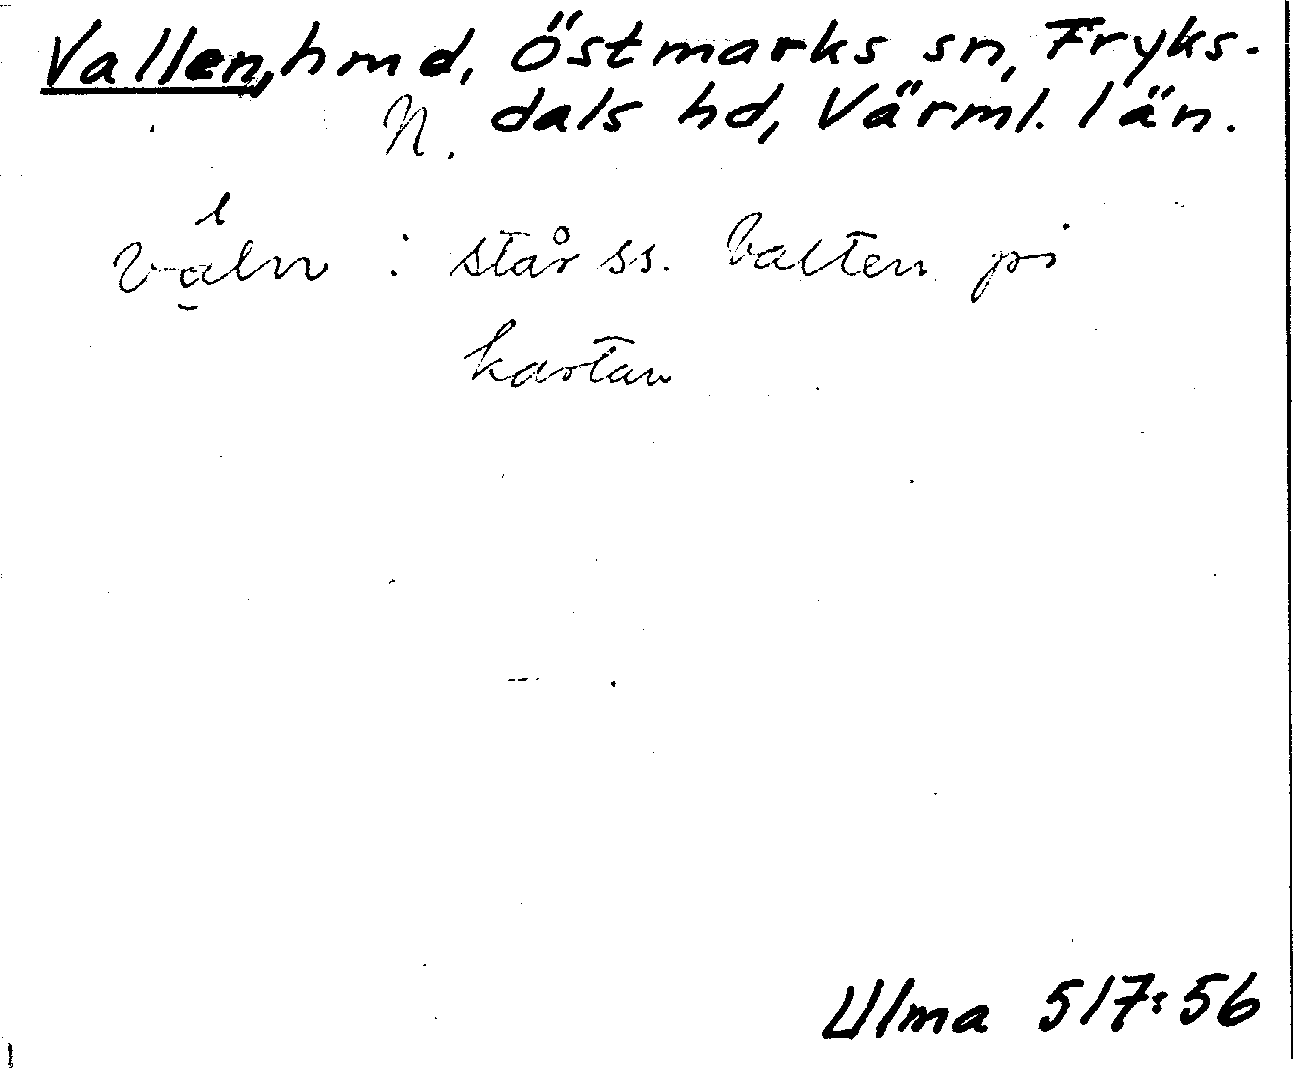 Vallen, hmd, Östmarks sn, Fryks-
N. dals hd, Värml. län.
l
valn : står ss. Valten på
kartan
Ulma 517:56